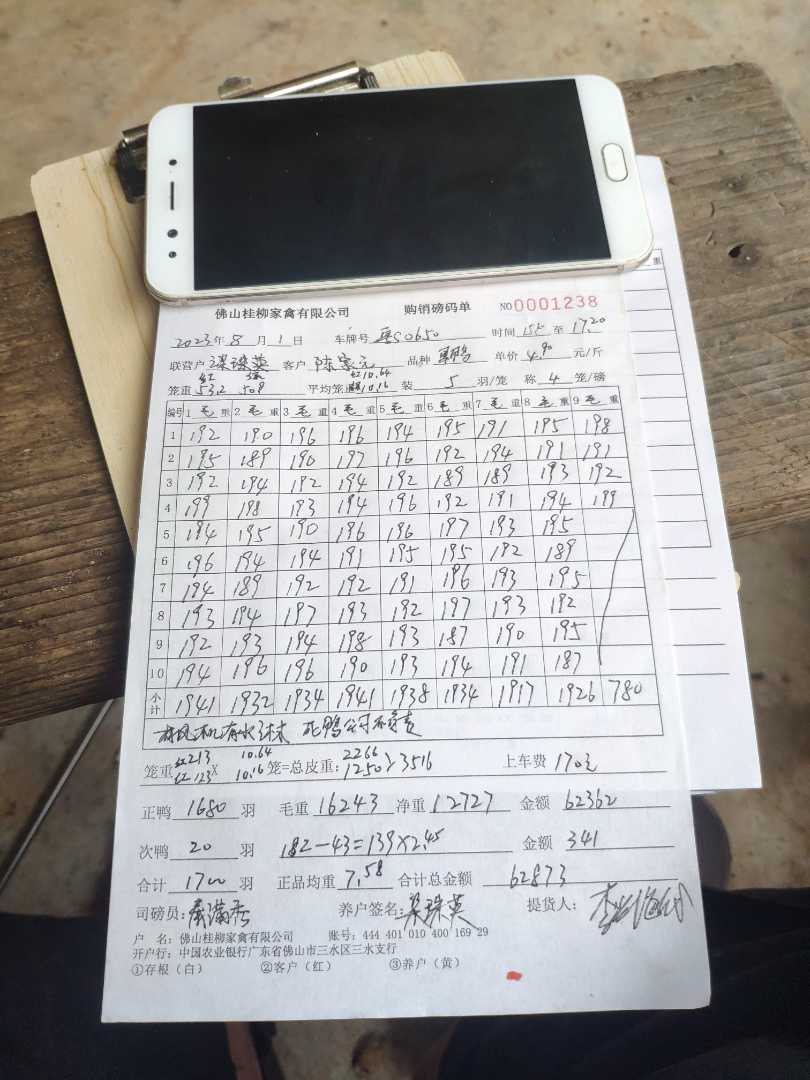 佛山桂柳家禽有限公司 购销磅码单 NO 0001238
2023年8月1日 车牌号 粤S0650 时间 至 17.20
联营户 梁珠英 客户 陈家元 品种 单价 4.90 元/斤
笼重 红 53.2 509 平均笼重 红10.64 10.16 装 5 羽/笼 称 4 笼/磅
编号 1 毛重 2 毛重 3 毛重 4 毛重 5 毛重 6 毛重 7 毛重 8 毛重 9 毛重
1 192 190 196 196 194 195 191 195 198
2 195 189 190 197 196 192 194 191 191
3 192 194 192 194 192 189 189 193 192
4 199 198 193 194 196 192 191 194 199
5 194 195 190 196 196 197 193 195
6 196 194 194 191 195 195 192 189
7 194 189 192 192 191 196 193 195
8 193 194 197 193 192 197 193 192
9 192 193 194 198 193 187 190 195
10 194 196 196 190 193 194 191 187
小计 1941 1932 1934 1941 1938 1934 1917 1926 780
有风机有水 死鸭公司不负责
笼重 红213 123 X 10.64 10.16 笼=总皮重: 2266 1250 3516 上车费 170元
正鸭 1680 羽 毛重 16243 净重 12727 金额 62362
次鸭 20 羽 182-43=139×2.45 金额 341
合计 1700 羽 正品均重 7.58 合计总金额 62873
司磅员: 养户签名: 梁珠英 提货人:
户 名: 佛山桂柳家禽有限公司 账号: 444 401 010 400 169 29
开户行: 中国农业银行广东省佛山市三水区三水支行
①存根(白) ②客户(红) ③养户(黄)